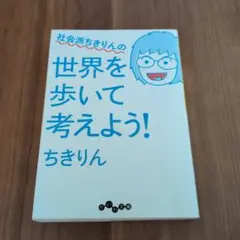 社会派ちきりんの
世界を
歩いて
考えよう!
ちきりん
だいわ文庫